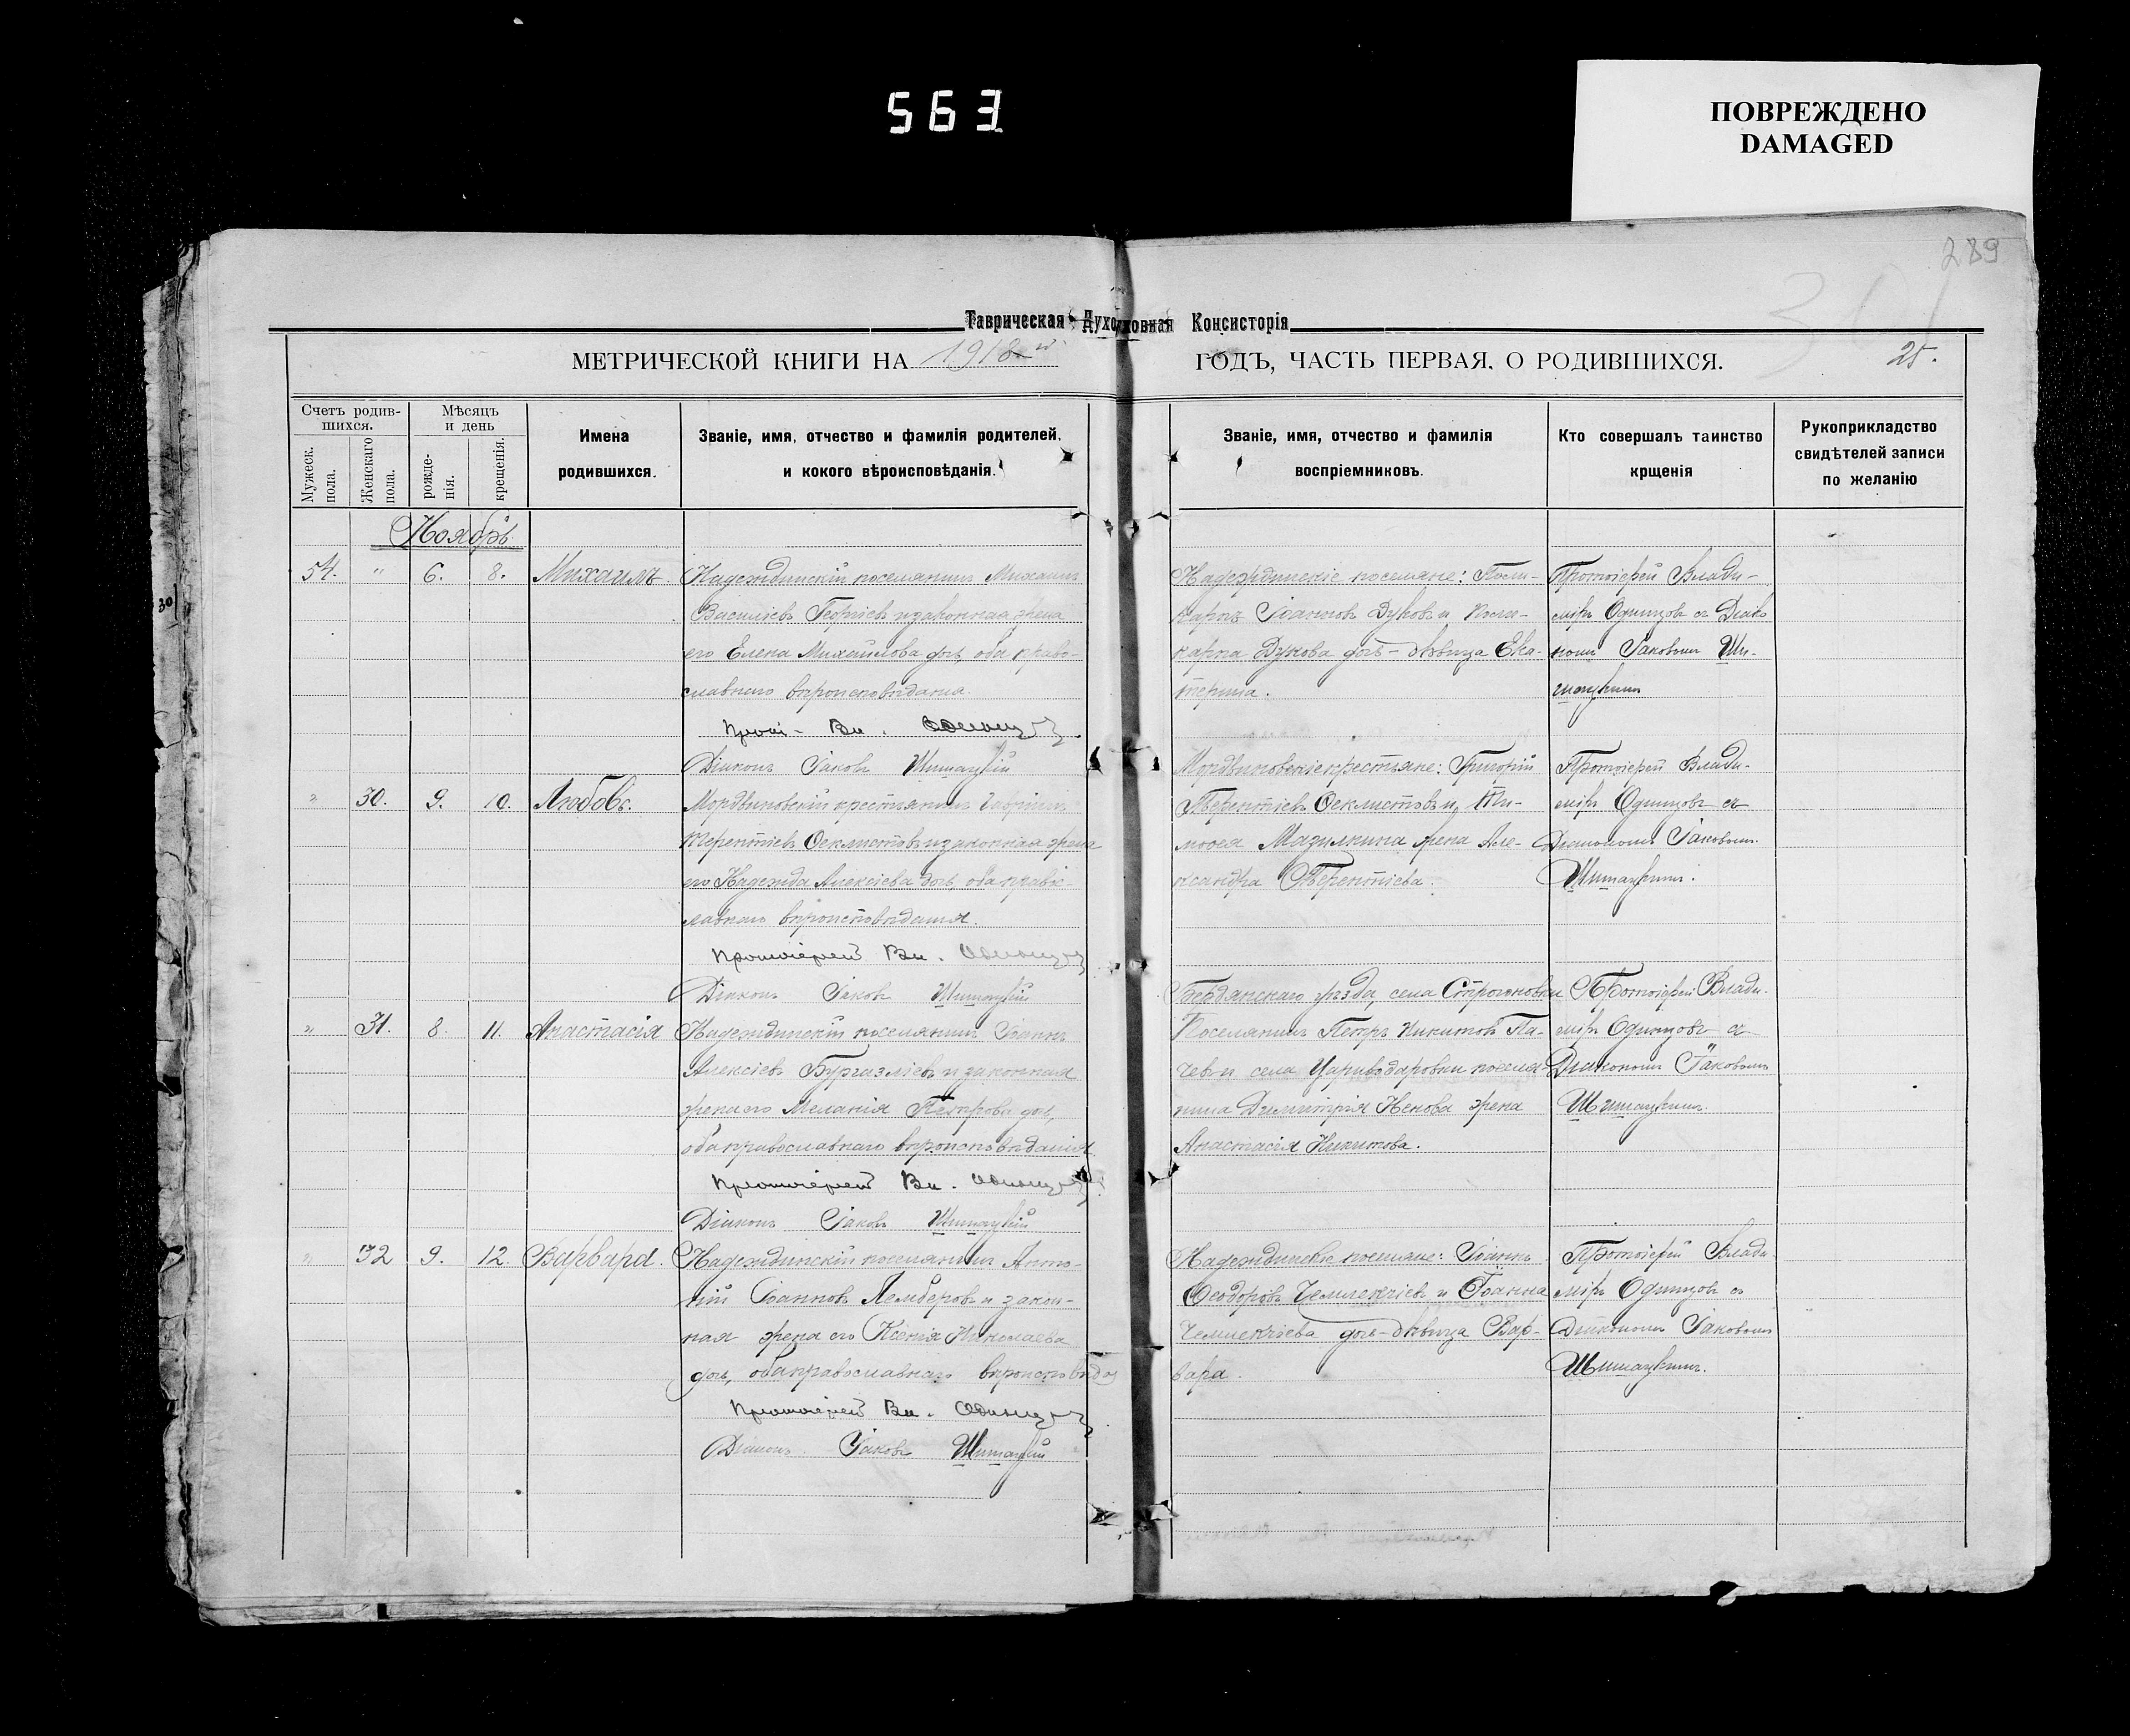 563
ПОВРЕЖДЕНО
DAMAGED
289
301
30
Таврическая Духовная Консисторія
МЕТРИЧЕСКОЙ КНИГИ НА 1918 й ГОДЪ, ЧАСТЬ ПЕРВАЯ, О РОДИВШИХСЯ.
25.
Счетъ родив-
шихся.
Мужеск. пола.
Женскаго пола.
Мѣсяцъ
и день
рожде-
нія.
крещенія.
Имена
родившихся.
Званіе, имя, отчество и фамилія родителей,
и кокого вѣроисповѣданія.
Званіе, имя, отчество и фамилія
воспріемниковъ.
Кто совершалъ таинство
крщенія
Рукоприкладство
свидѣтелей записи
по желанію
Ноябрь
54. " 6. 8. Михаилъ.
Надеждинскій поселянинъ Михаилъ
Василіевъ Георгіевъ и законная жена
его Елена Михайлова дочь, оба право-
славнаго вѣроисповѣданія.
Прот. Вл. Одинцовъ
Діаконъ Іаковъ Шишацкій
Надеждинскіе поселяне: Поли-
карпъ Іоанновъ Дуковъ и Поли-
карпа Дукова дочь-дѣвица Ека-
терина.
Протоіерей Влади-
міръ Одинцовъ съ Діако
номъ Іаковомъ Ши-
шацкимъ
" 30. 9. 10. Любовь.
Мордвиновскій крестьянинъ Гавріилъ
Терентіевъ Ѳеклистовъ и законная жена
его Надежда Алексіева дочь, оба правос-
лавнаго вѣроисповѣданія.
Протоіерей Вл. Одинцовъ
Діаконъ Іаковъ Шишацкій
Мордвиновскіе крестьяне: Григорій
Терентіевъ Ѳеклистовъ и Ти-
моѳея Мазилкина жена Але-
ксандра Терентіева.
Протоіерей Влади-
міръ Одинцовъ съ
Діакономъ Іаковомъ
Шишацкимъ.
" 31. 8. 11. Анастасія
Надеждинскій поселянинъ Іоаннъ
Алексіевъ Бургазліевъ и законная
жена его Меланія Петрова дочь,
оба православнаго вѣроисповѣданія.
Протоіерей Вл. Одинцовъ
Діаконъ Іаковъ Шишацкій
Бердянскаго уѣзда, села Строгоновки
Поселянинъ Петръ Никитовъ Па-
чевъ и села Цариводаровки поселя-
нина Димитрія Ненова жена
Анастасія Никитова.
Протоіерей Влади-
міръ Одинцовъ съ
Діакономъ Іаковомъ
Шишацкимъ.
" 32 9. 12. Варвара.
Надеждинскій поселянинъ Анто-
ній Іоанновъ Лемберовъ и закон-
ная жена его Ксенія Николаева
дочь, оба православнаго вѣроисповѣда
Протоіерей Вл. Одинцовъ
Діаконъ Іаковъ Шишацкій
Надеждинскіе поселяне: Іоаннъ
Ѳеодоровъ Чемлекчіевъ и Іоанна
Чемлекчіева дочь-дѣвица Вар-
вара.
Протоіерей Влади
міръ Одинцовъ съ
Діакономъ Іаковомъ
Шишацкимъ.